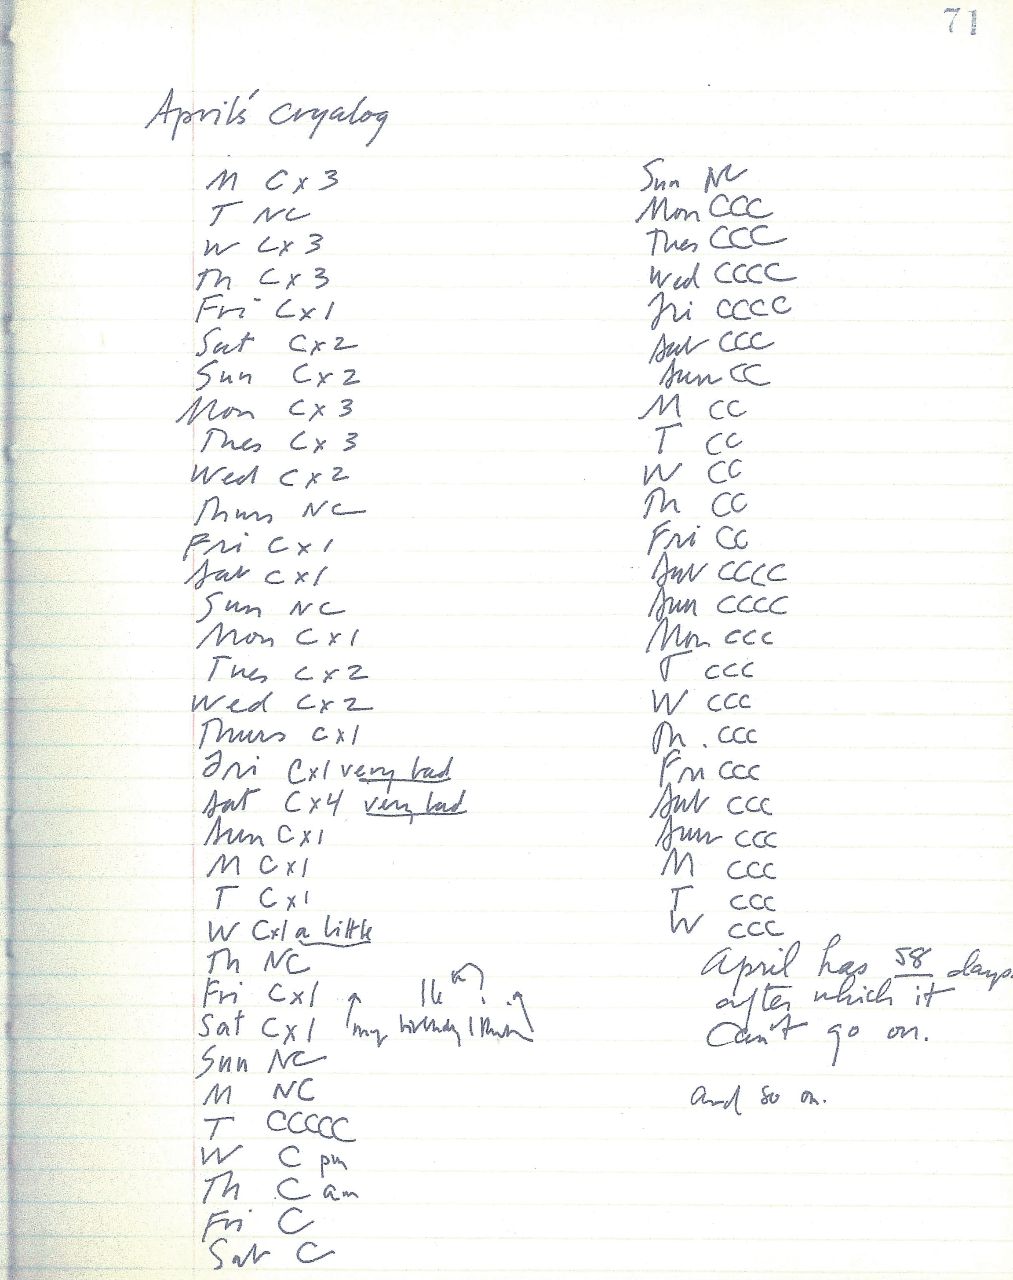 71
April's Cryalog
M C x 3
T NC
W C x 3
Th C x 3
Fri C x 1
Sat C x 2
Sun C x 2
Mon C x 3
Thes C x 3
Wed C x 2
Thurs NC
Fri C x 1
Sat C x 1
Sun NC
Mon C x 1
Tues C x 2
Wed C x 2
Thurs C x 1
Fri C x 1 very bad
Sat C x 4 very bad
Sun C x 1
M C x 1
T C x 1
W C x 1 a little
Th NC
Fri C x 1
16th?
Sat C x 1
my birthday I think
Sun NC
M NC
T CCCCC
W C pm
Th C am
Fri C
Sat C
Sun NC
Mon CCC
Thes CCC
Wed CCCC
Fri CCCC
Sat CCC
Sun CC
M CC
T CC
W CC
Th CC
Fri CC
Sat CCCC
Sun CCCC
Mon CCC
T CCC
W CCC
Th. CCC
Fri CCC
Sat CCC
Sun CCC
M CCC
T CCC
W CCC
April has 58 days
after which it
can't go on.
and so on.